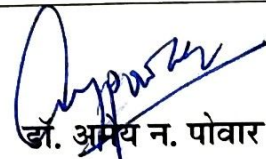 डॉ. अमेय न. पोवार